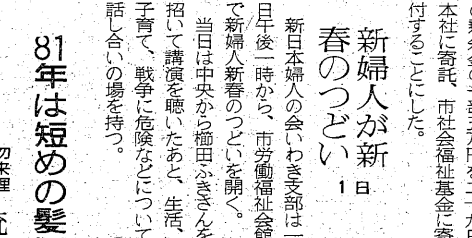 本社に寄託、市社会福祉基金に寄
付することにした。
新婦人が新
春のつどい
1日
新日本婦人の会いわき支部は一
日午後一時から、市労働福祉会館
で新婦人新春のつどいを開く。
当日は中央から櫛田ふきさんを
招いて講演を聴いたあと、生活、
子育て、戦争に危険などについて
話し合いの場を持つ。
81年は短めの髪
勿来理